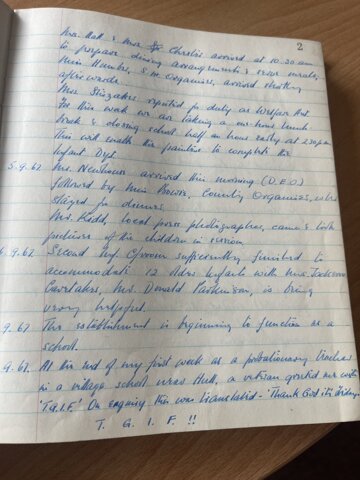 2
Mrs. Hall & Mrs. Christie arrived at 10.30 am
to prepare dining arrangements & serve meals,
Miss Humber, S.M. Organiser, arrived shortly
afterwards.
Mrs. reported for duty as Welfare Asst.
For this week we are taking a one-hour lunch
break & closing school half an hour early at 2.30pm
This will enable the painters to complete the
Infant Dept.
5.9.67. Mr. Newhouse arrived this morning (D.E.O.)
followed by Miss Browse, County Organiser, who
stayed for dinner.
Mr. Kidd, local press photographer, came & took
pictures of the children in session.
6.9.67 Second Inf. C/room sufficiently finished to
accommodate 12 older infants with Mrs. Jackson
Caretaker, Mr. Donald Parkinson, is being
very helpful.
.9.67 This establishment is beginning to function as a
school.
.9.67. At the end of my first week as a probationary teacher
in a village school near Hull, a veteran greeted me with
'T.G.I.F.' On enquiry this was translated - 'Thank God it's Friday.'
T. G. I. F. !!